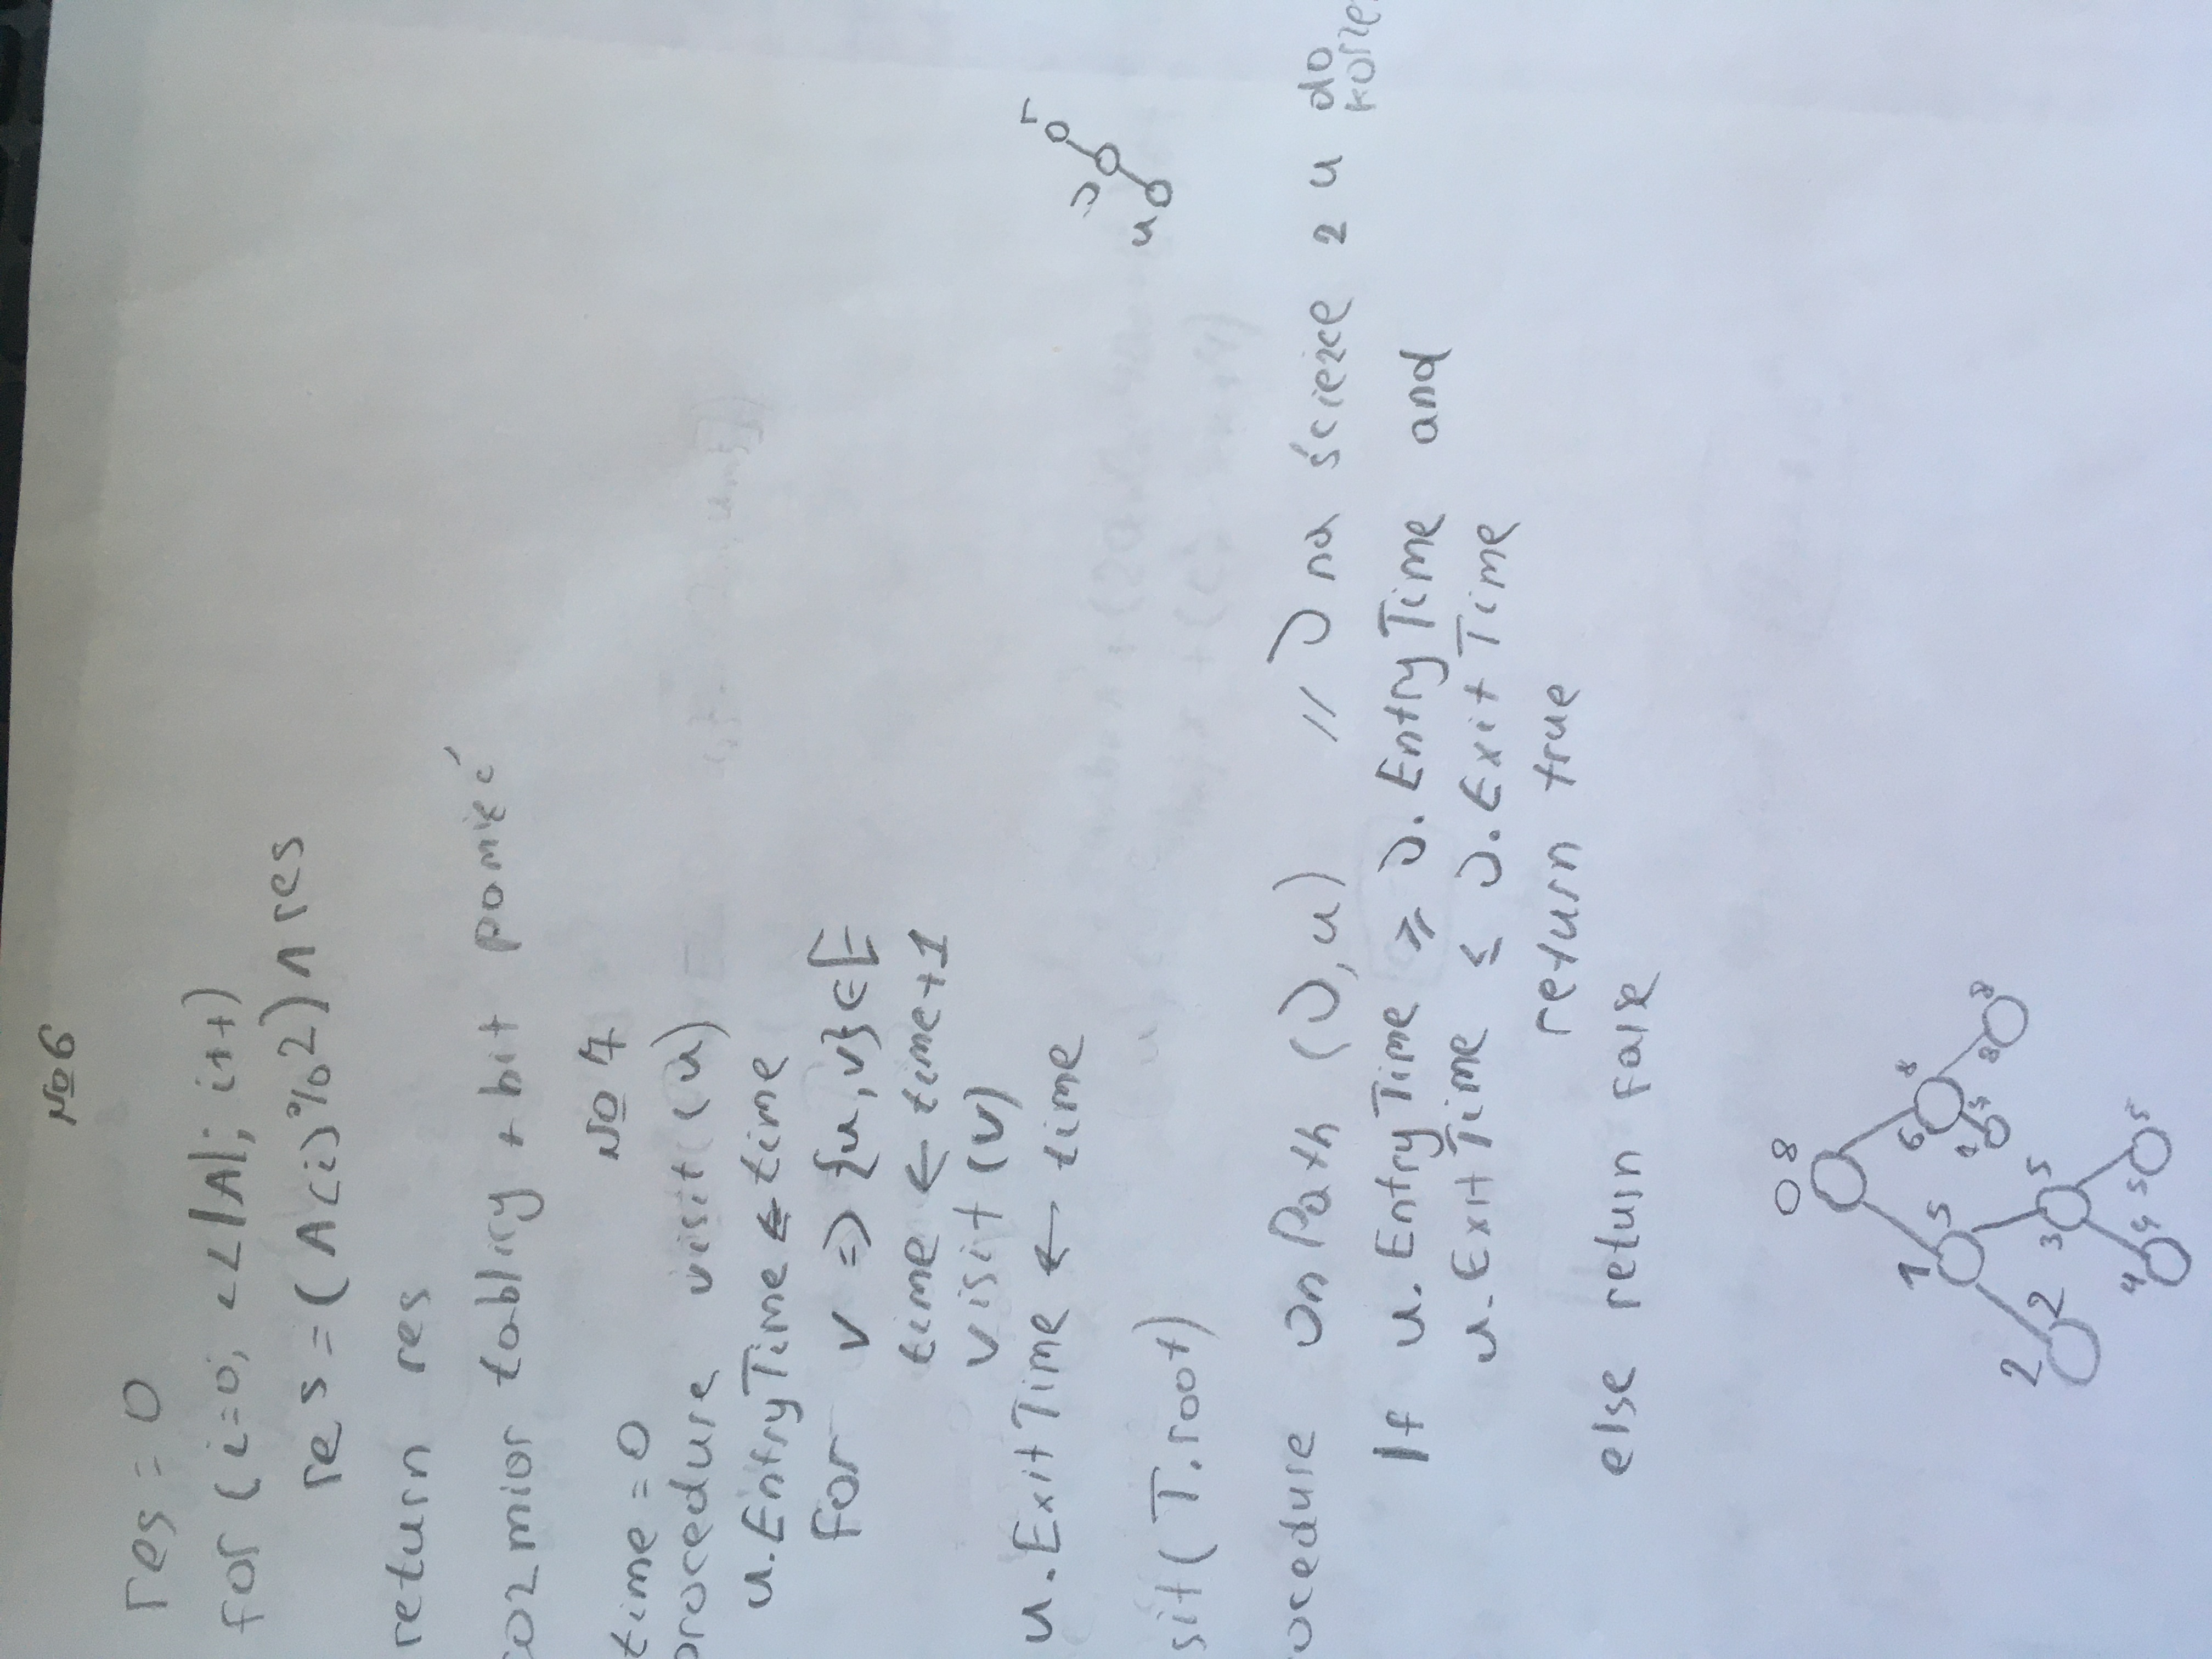 №6
res = 0
for (i=0; i<|A|; i++)
res = (A(i)%2) ∧ res
return res
rozmiar tablicy + bit pamięć
№ 7
time = 0
procedure visit (u)
u.EntryTime ← time
for v => {u,v}∈E
time ← time+1
visit (v)
u.ExitTime ← time
sit( T.root)
r
υ
u
ocedure OnPath (υ,u) // υ na ścieżce z u do
korze
If u.EntryTime ≥ υ.EntryTime and
u.ExitTime ≤ υ.ExitTime
return true
else return false
0 8
1 5 6 8
8 8
2 2 3 5
4 4 5 5